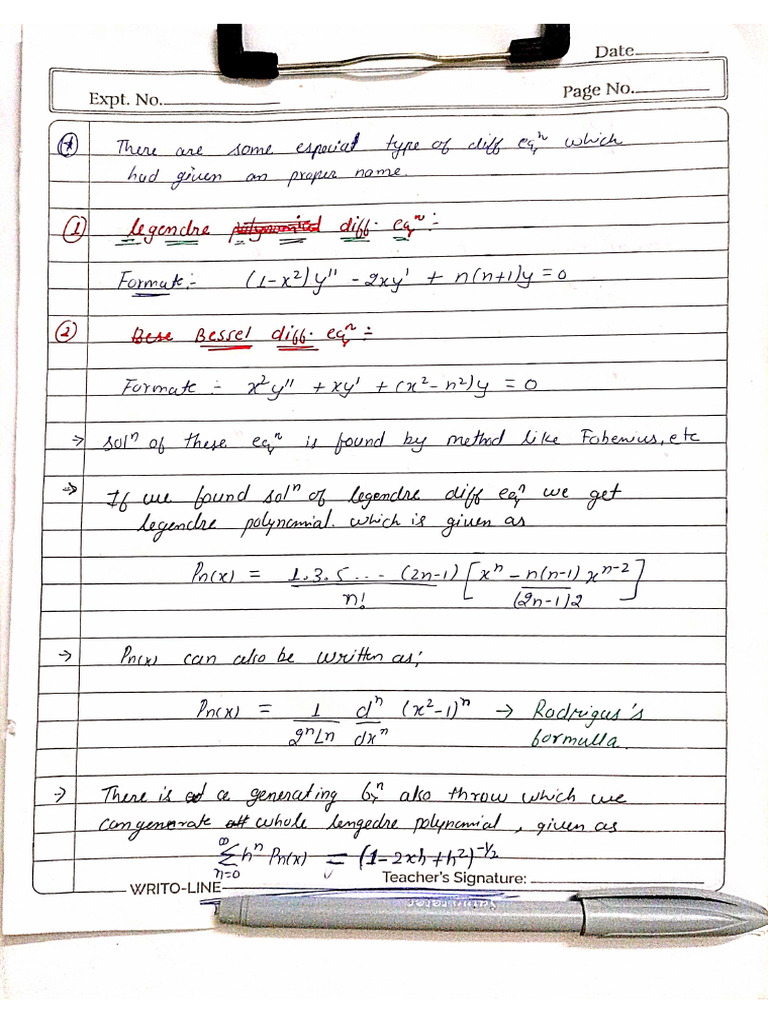 Date
Expt. No.
Page No.
* There are some especial type of diff eqⁿ which
had given an proper name.
① Legendre diff. eqⁿ :-
Formate :- (1-x²)y'' - 2xy' + n(n+1)y = 0
② Bese Bessel diff. eqⁿ :-
Formate :- x²y'' + xy' + (x² - n²)y = 0
→ solⁿ of these eqⁿ is found by method like Fobenius, etc
→ If we found solⁿ of legendre diff eqⁿ we get
legendre polynomial. which is given as
Pn(x) = 1.3.5 ... (2n-1) / n! [xⁿ - n(n-1) xⁿ⁻² / (2n-1)2]
→ Pn(x) can also be written as;
Pn(x) = 1 / 2ⁿ⌊n dⁿ / dxⁿ (x²-1)ⁿ → Rodrigus's
formulla.
→ There is a generating fⁿ also throw which we
can generate whole lengedre polynomial, given as
∞ Σ n=0 hⁿ Pn(x) = (1-2xh+h²)^-1/2
Teacher's Signature:
WRITO-LINE